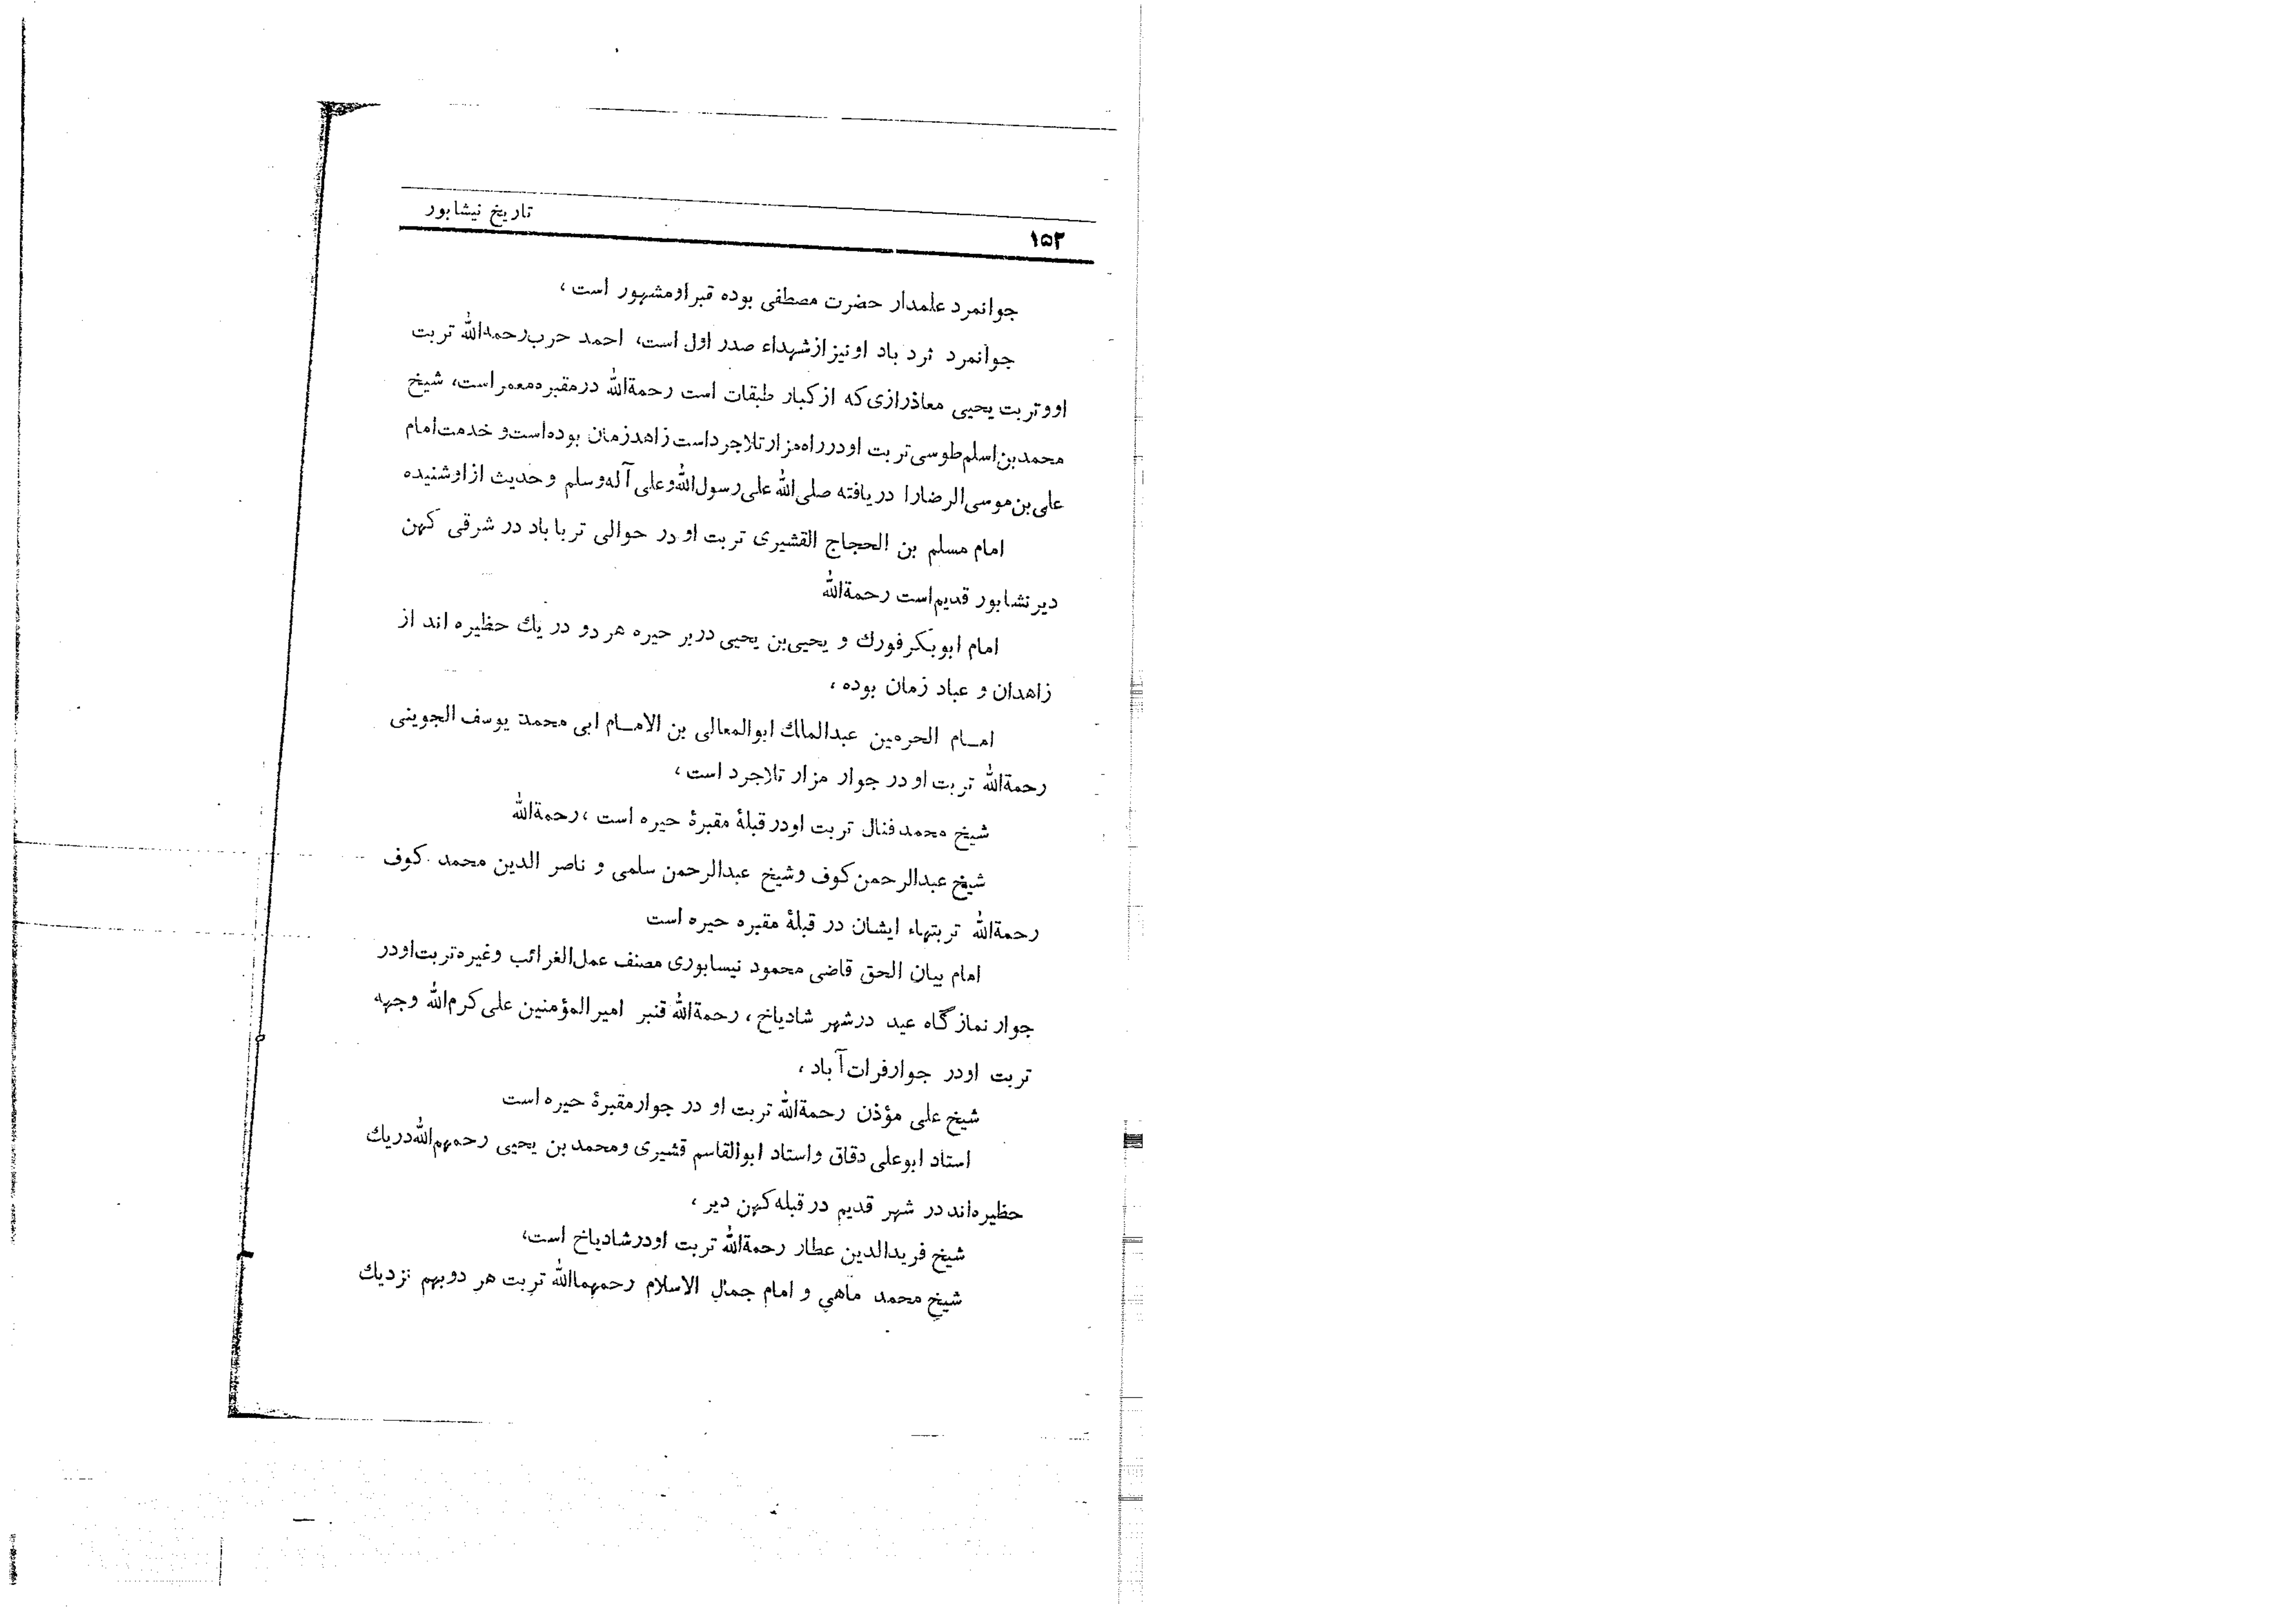 تاریخ نیشابور
۱۵۲
جوانمرد علمدار حضرت مصطفی بوده قبر اومشهور است ،
جوانمرد ثرد باد اونیز ازشهداء صدر اول است، احمد حرب رحمهالله تربت
او وتربت یحیی معاذرازی که از کبار طبقات است رحمةالله درمقبره معمر است، شیخ
محمدبن اسلم طوسی تربت اودرراه مزار تلاجرد است زاهدزمان بوده است و خدمت امام
علی بن موسی الرضارا دریافته صلی الله علی رسول الله وعلی آله وسلم وحدیث ازاوشنیده
امام مسلم بن الحجاج القشیری تربت او در حوالی ترباباد در شرقی کهن
دیر نشابور قدیم است رحمةالله
امام ابوبکر فورك و یحیی بن یحیی دربر حیره هر دو در یك حظیره اند از
زاهدان و عباد زمان بوده ،
امـام الحرمین عبدالمالك ابوالمعالی بن الامـام ابی محمد یوسف الجوینی
رحمةالله تربت او در جوار مزار تلاجرد است ،
شیخ محمد فنال تربت اودر قبلهٔ مقبرهٔ حیره است ، رحمةالله
شیخ عبدالرحمن کوف وشیخ عبدالرحمن سلمی و ناصر الدین محمد کوف
رحمةالله تربتهاء ایشان در قبلهٔ مقبره حیره است
امام بیان الحق قاضی محمود نیسابوری مصنف عمل الغرائب وغیره تربت اودر
جوار نماز گاه عید درشهر شادیاخ ، رحمةالله قنبر امیر المؤمنین علی کرم الله وجهه
تربت اودر جوارفرات آباد ،
شیخ علی مؤذن رحمةالله تربت او در جوارمقبرهٔ حیره است
استاد ابوعلی دقاق واستاد ابوالقاسم قشیری ومحمد بن یحیی رحمهم الله دریك
حظیره اند در شهر قدیم در قبله کهن دیر ،
شیخ فریدالدین عطار رحمةالله تربت اودرشادیاخ است،
شیخ محمد ماهی و امام جمال الاسلام رحمهما الله تربت هر دوبهم نزدیك